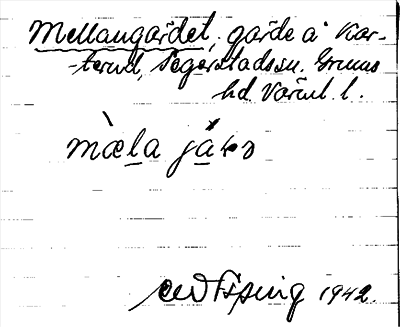 Mellangärdet, gärde å Kar-
terud, Segerstads sn. Grums
hd. Värml. l.
mæla jæ
1942.